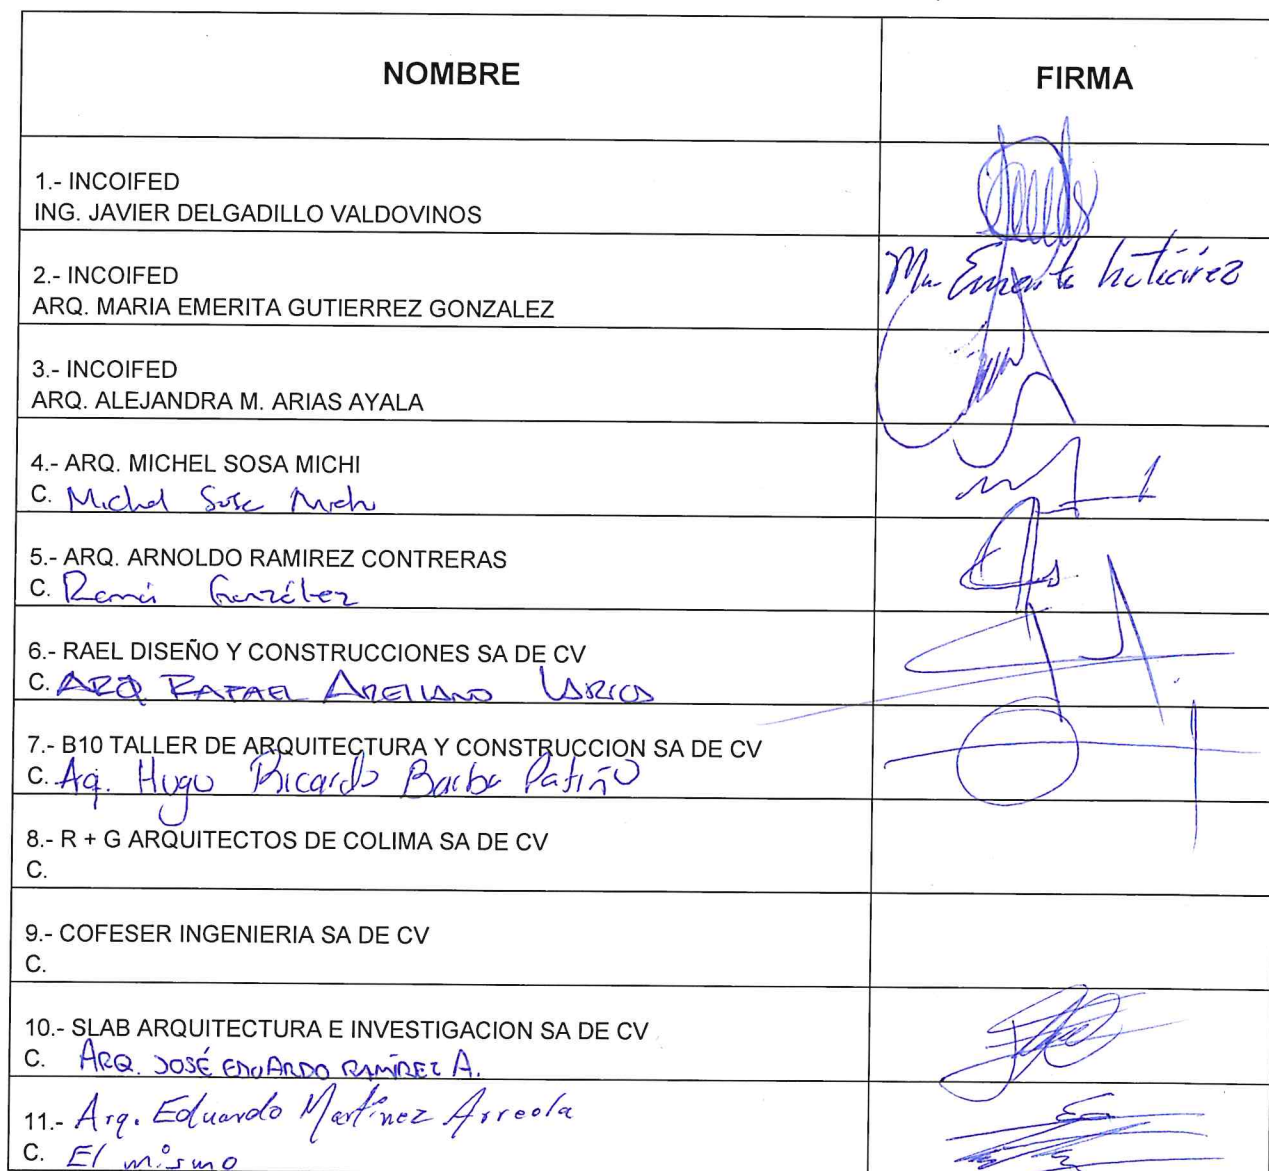 NOMBRE
FIRMA
1.- INCOIFED
ING. JAVIER DELGADILLO VALDOVINOS
2.- INCOIFED
ARQ. MARIA EMERITA GUTIERREZ GONZALEZ
Ma Emerita Gutiérrez
3.- INCOIFED
ARQ. ALEJANDRA M. ARIAS AYALA
4.- ARQ. MICHEL SOSA MICHI
C. Michel Sosa Michi
5.- ARQ. ARNOLDO RAMIREZ CONTRERAS
C. González
6.- RAEL DISEÑO Y CONSTRUCCIONES SA DE CV
C. ARQ RAFAEL ARELLANO
7.- B10 TALLER DE ARQUITECTURA Y CONSTRUCCION SA DE CV
C. Aq. Hugo Ricardo Barba Patiño
8.- R + G ARQUITECTOS DE COLIMA SA DE CV
C.
9.- COFESER INGENIERIA SA DE CV
C.
10.- SLAB ARQUITECTURA E INVESTIGACION SA DE CV
C. ARQ. JOSÉ EDUARDO RAMÍREZ A.
11.- Arq. Eduardo Martínez Arreola
C. El mismo